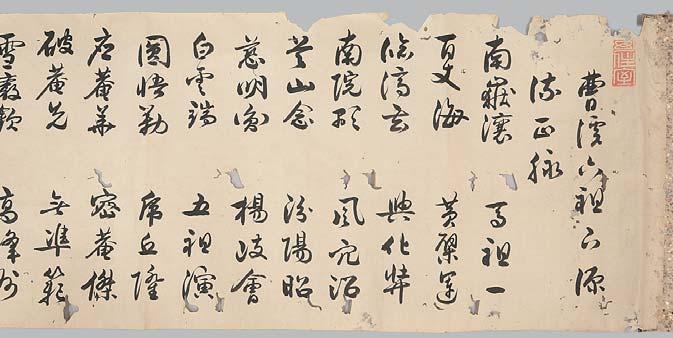 曹溪六祖下源
流正脉
南嶽讓 馬祖一
百丈海 黃檗運
臨濟玄 興化奘
南院顒 風穴沼
首山念 汾陽昭
慈明圓 楊岐會
白雲端 五祖演
圜悟勤 虎丘隆
应菴華 密菴傑
破菴先 無準範
雪巖欽 高峯妙